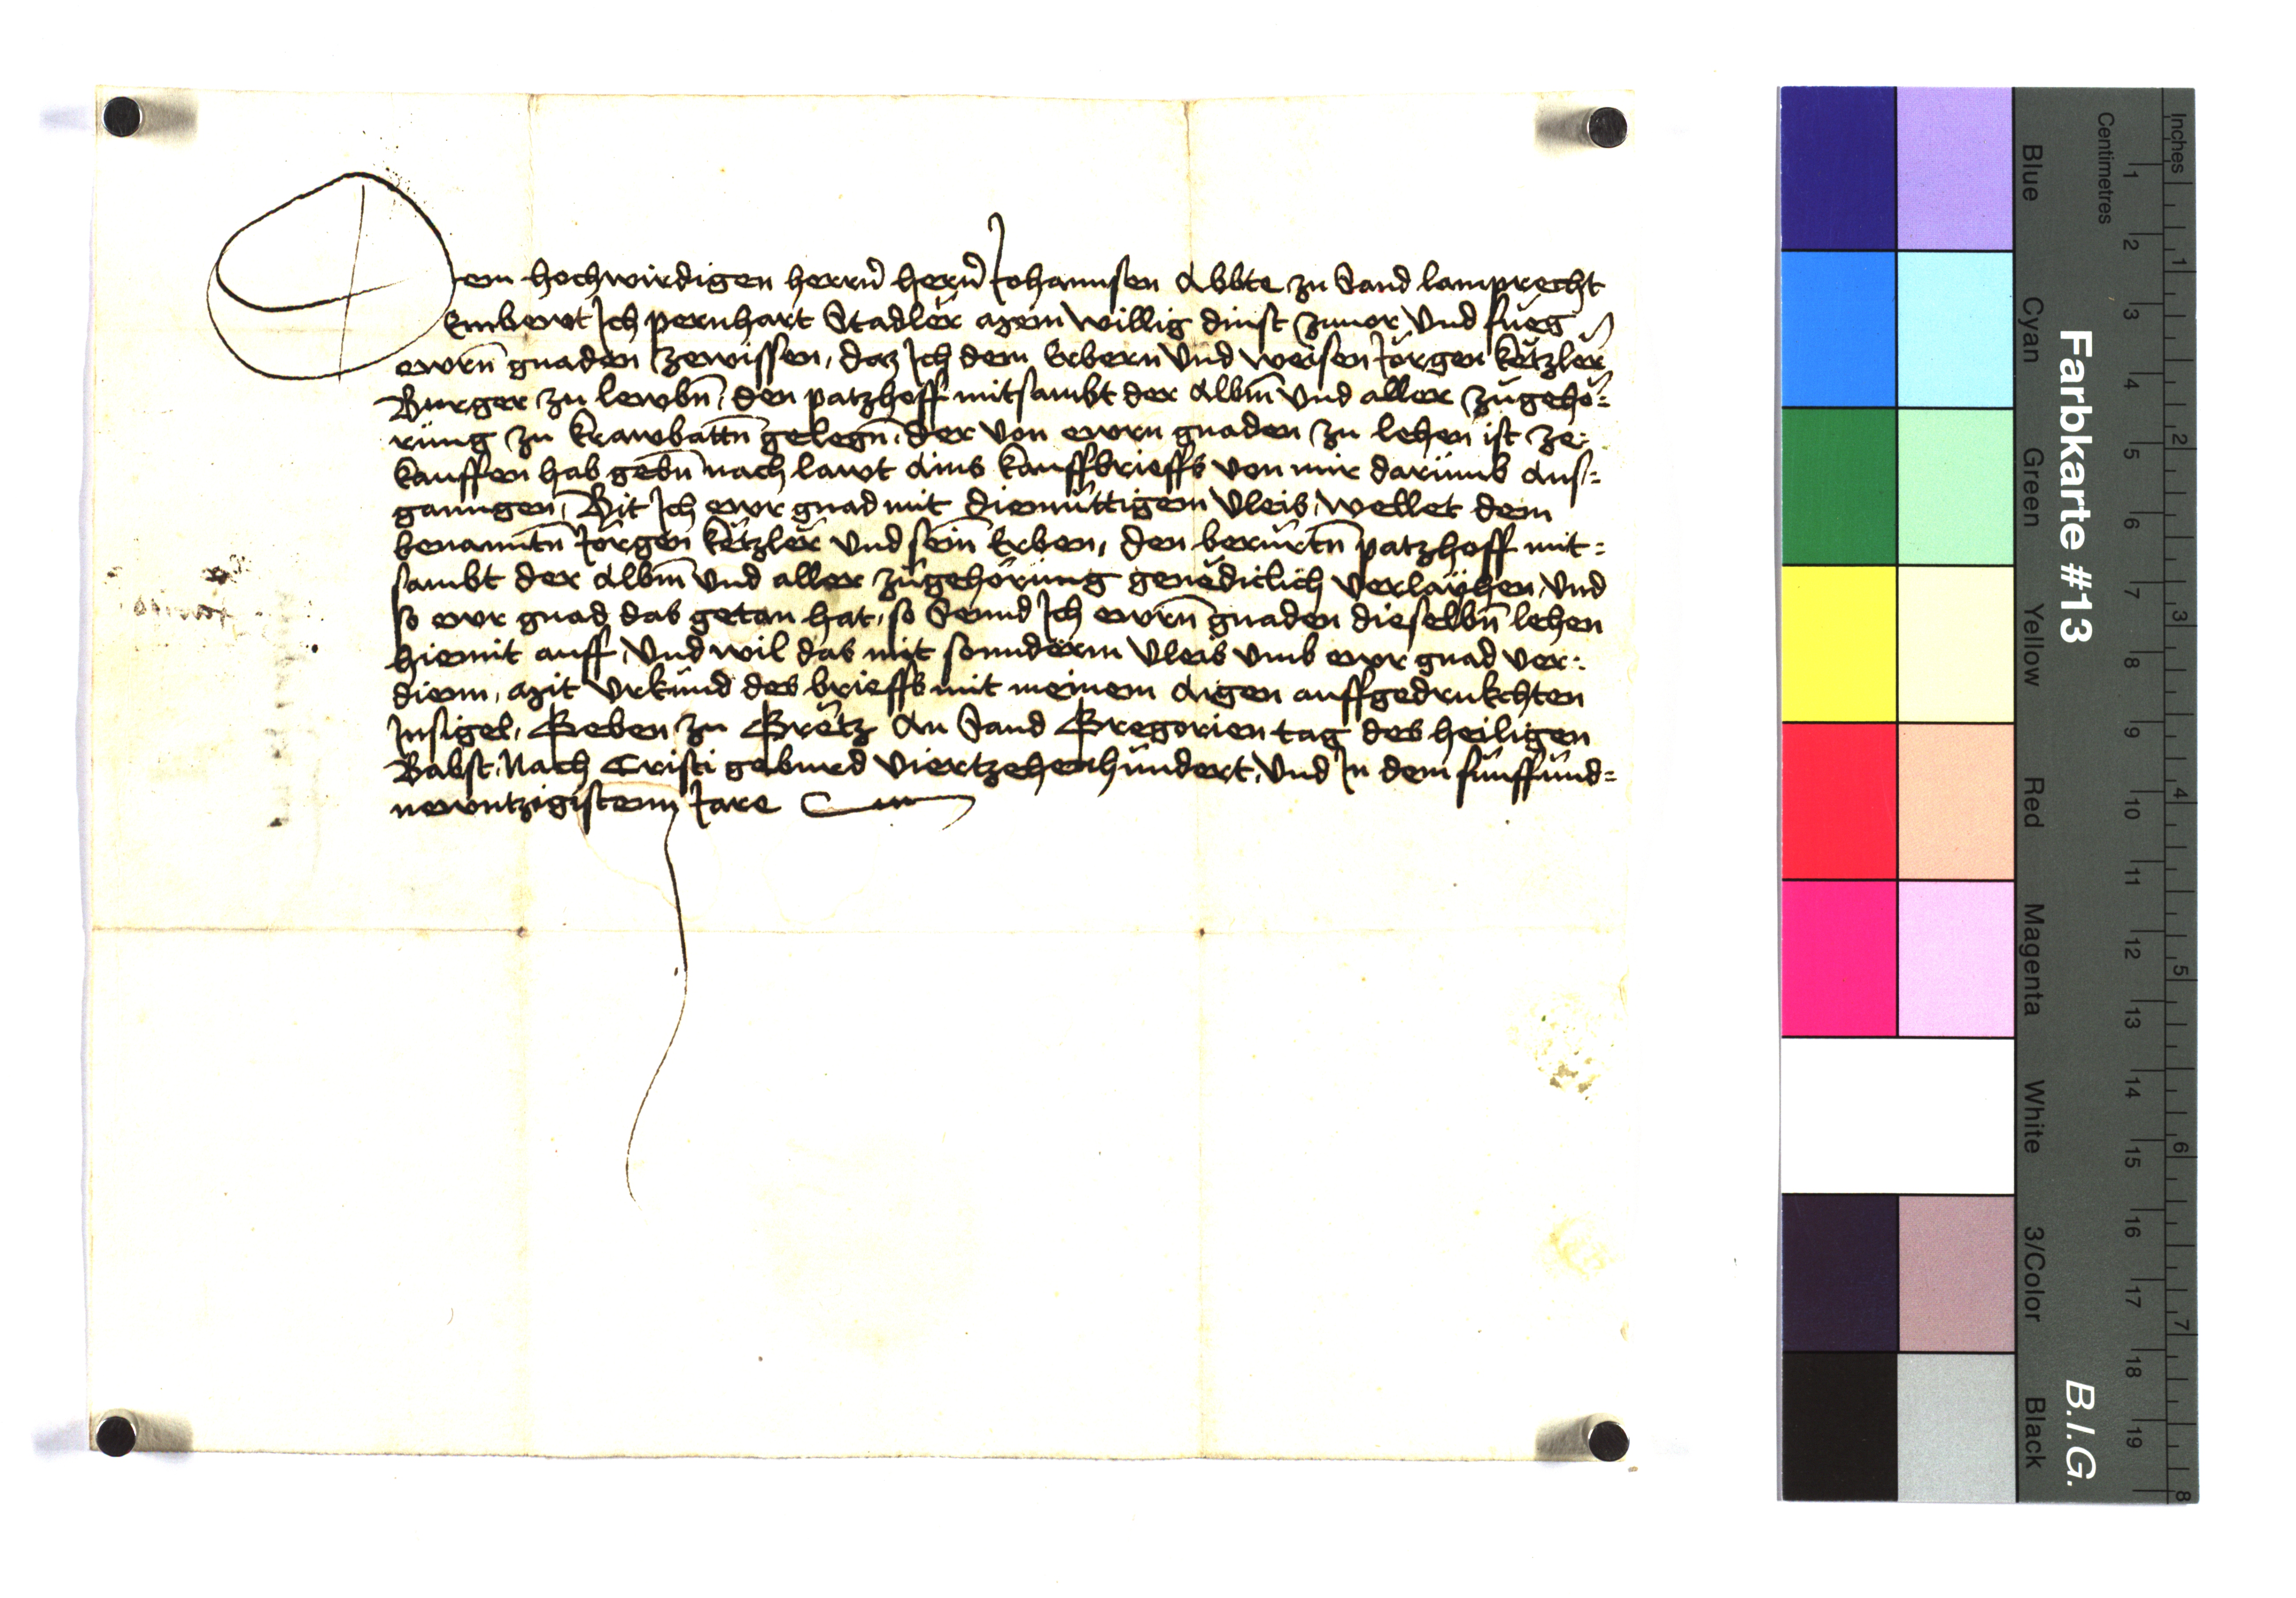 Dem hochwirdigen herrn̄ hern̄ Johannsen Abbte zu Sand lamprecht
Embewt Ich pernhart Stadler mein willig dinst zuuor Vnd fueg
ewrn̄ gnaden zewissen, daz Ich dem Erbern Vnd weisen Jörgen ketzler
Burger zu lewbn̄, den patzhoff mitsambt der Albm̄ Vnd aller zugehö=
rung zu krawbattn̄ gelegn̄, der von ewrn gnaden zu lehen ist ze=
kauffen hab gebn̄ nach lawt ains kauffbrieffs von mir darumb Aus=
ganngen, Bit Ich ewr gnad mit diemuttigem Vleis, wellet dem
benanntn̄ Jörgen ketzler Vnd sein̄ Erben, den berurtn̄ patzhoff mit=
sambt der Albm̄ Vnd aller zugehörung genediclich Verlayhen, Vnd
so ewr gnad das getan hat, so Sennd Ich ewrn̄ gnaden dieselbn̄ lehen
hiemit auff, Vnd wil das mit sonnderm Vleis Vmb ewr gnad ver=
dienn, Mit Vrkund des brieffs mit meinem Aigen auffgedrukchten
Insigel, Geben zu Gretz An Sand Gregorien tag des heiligen
Babst, Nach Cristi geburd Viertzehenhundert, Vnd In dem funffund=
newntzigistenn Jare
Farbkarte #13
B.I.G.
Inches 1 2 3 4 5 6 7 8
Centimetres 1 2 3 4 5 6 7 8 9 10 11 12 13 14 15 16 17 18 19
Blue Cyan Green Yellow Red Magenta White 3/Color Black